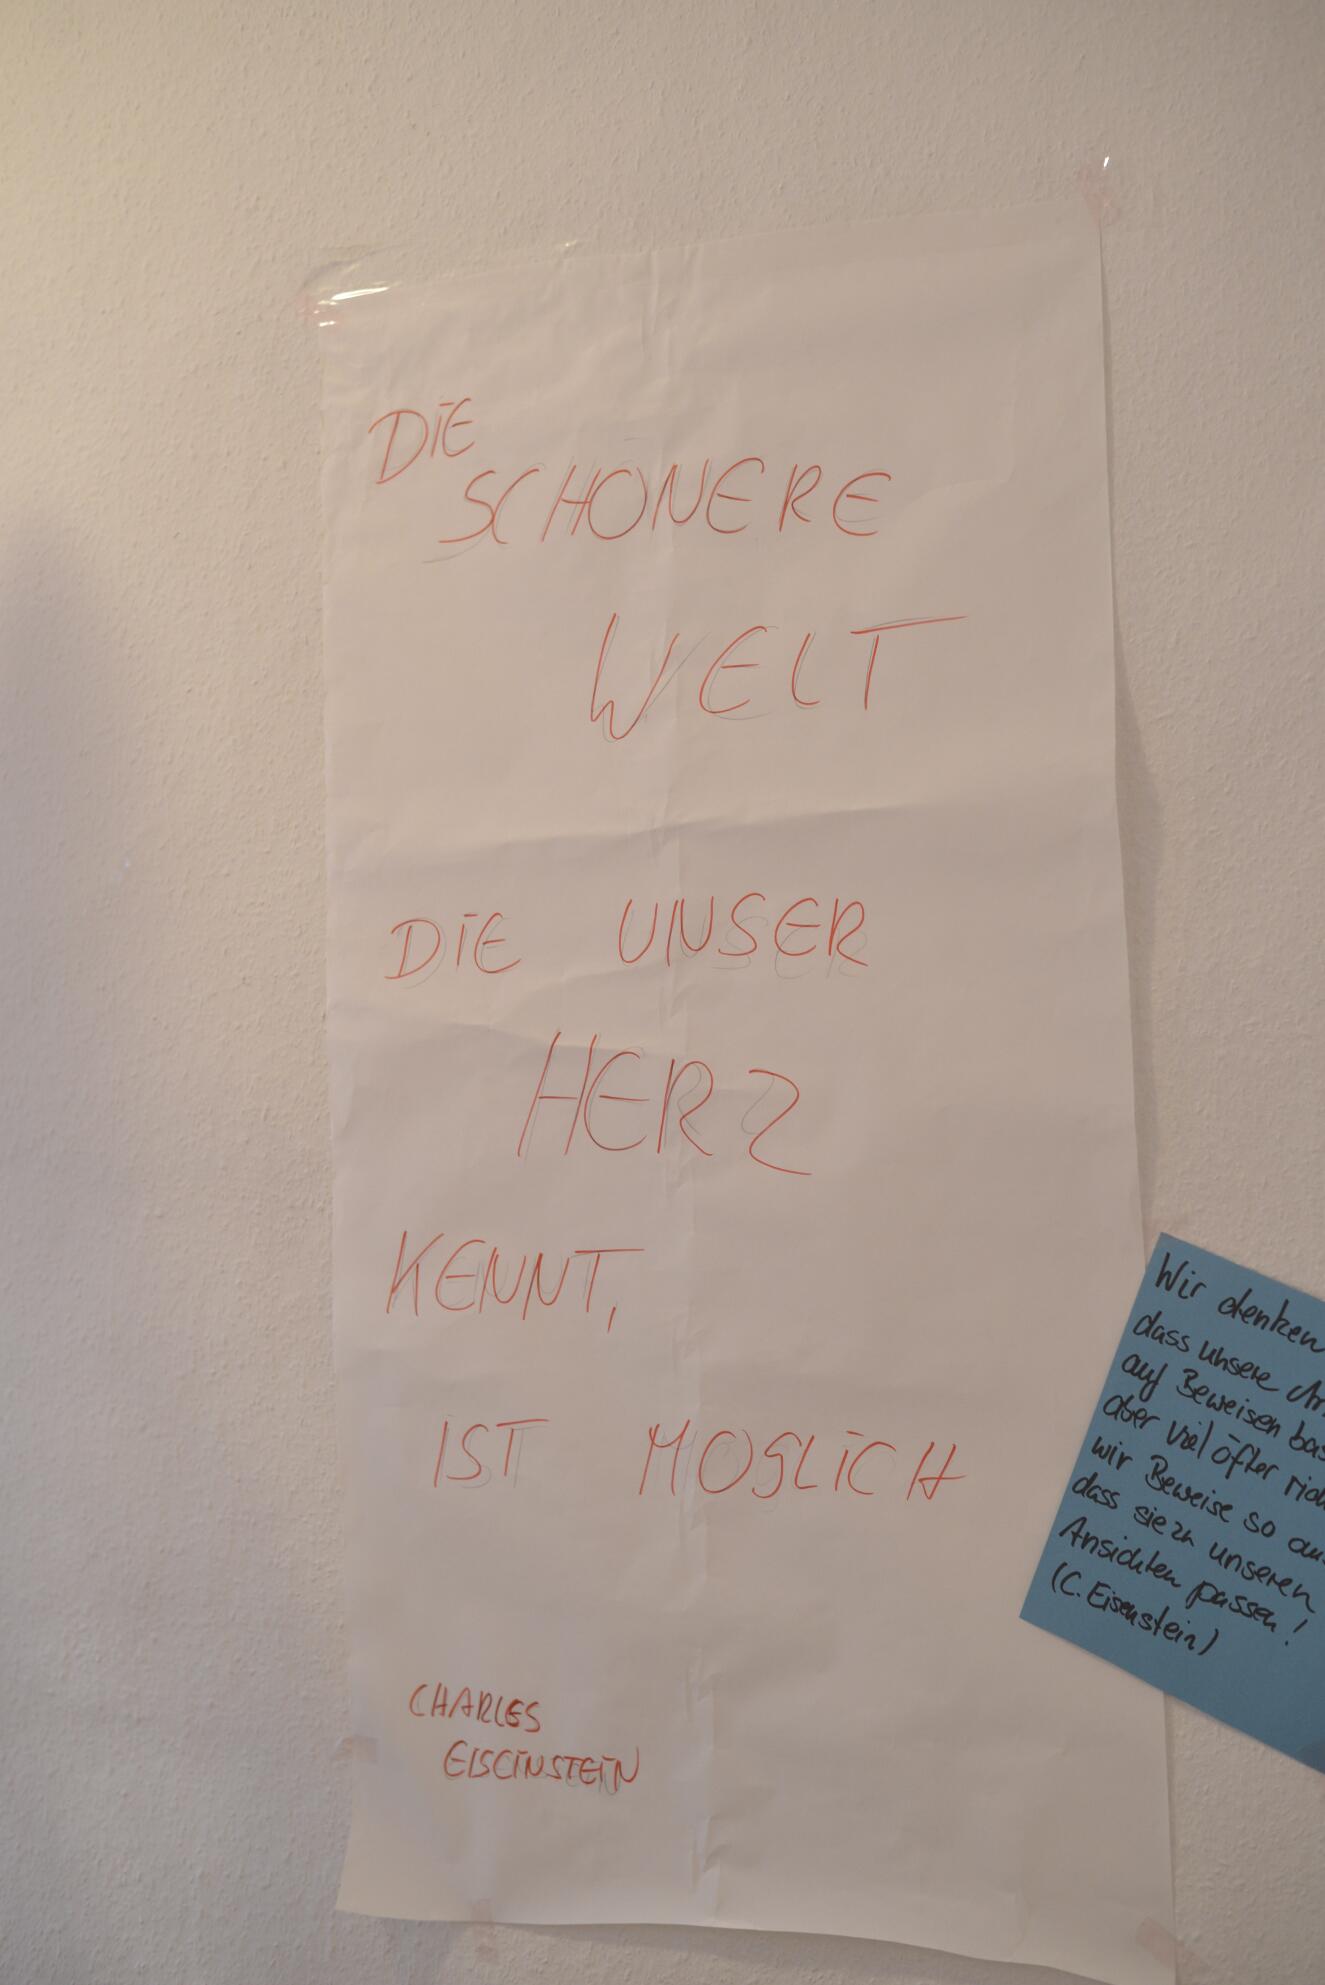 DIE
SCHONERE
WELT
DIE UNSER
HERZ
KENNT,
IST MOGLICH
CHARLES
EISEINSTEIN
Wir denken
dass unsere
auf Beweisen
aber viel öfter
wir Beweise so
dass sie zu unseren
Ansichten passen!
(C. Eisenstein)